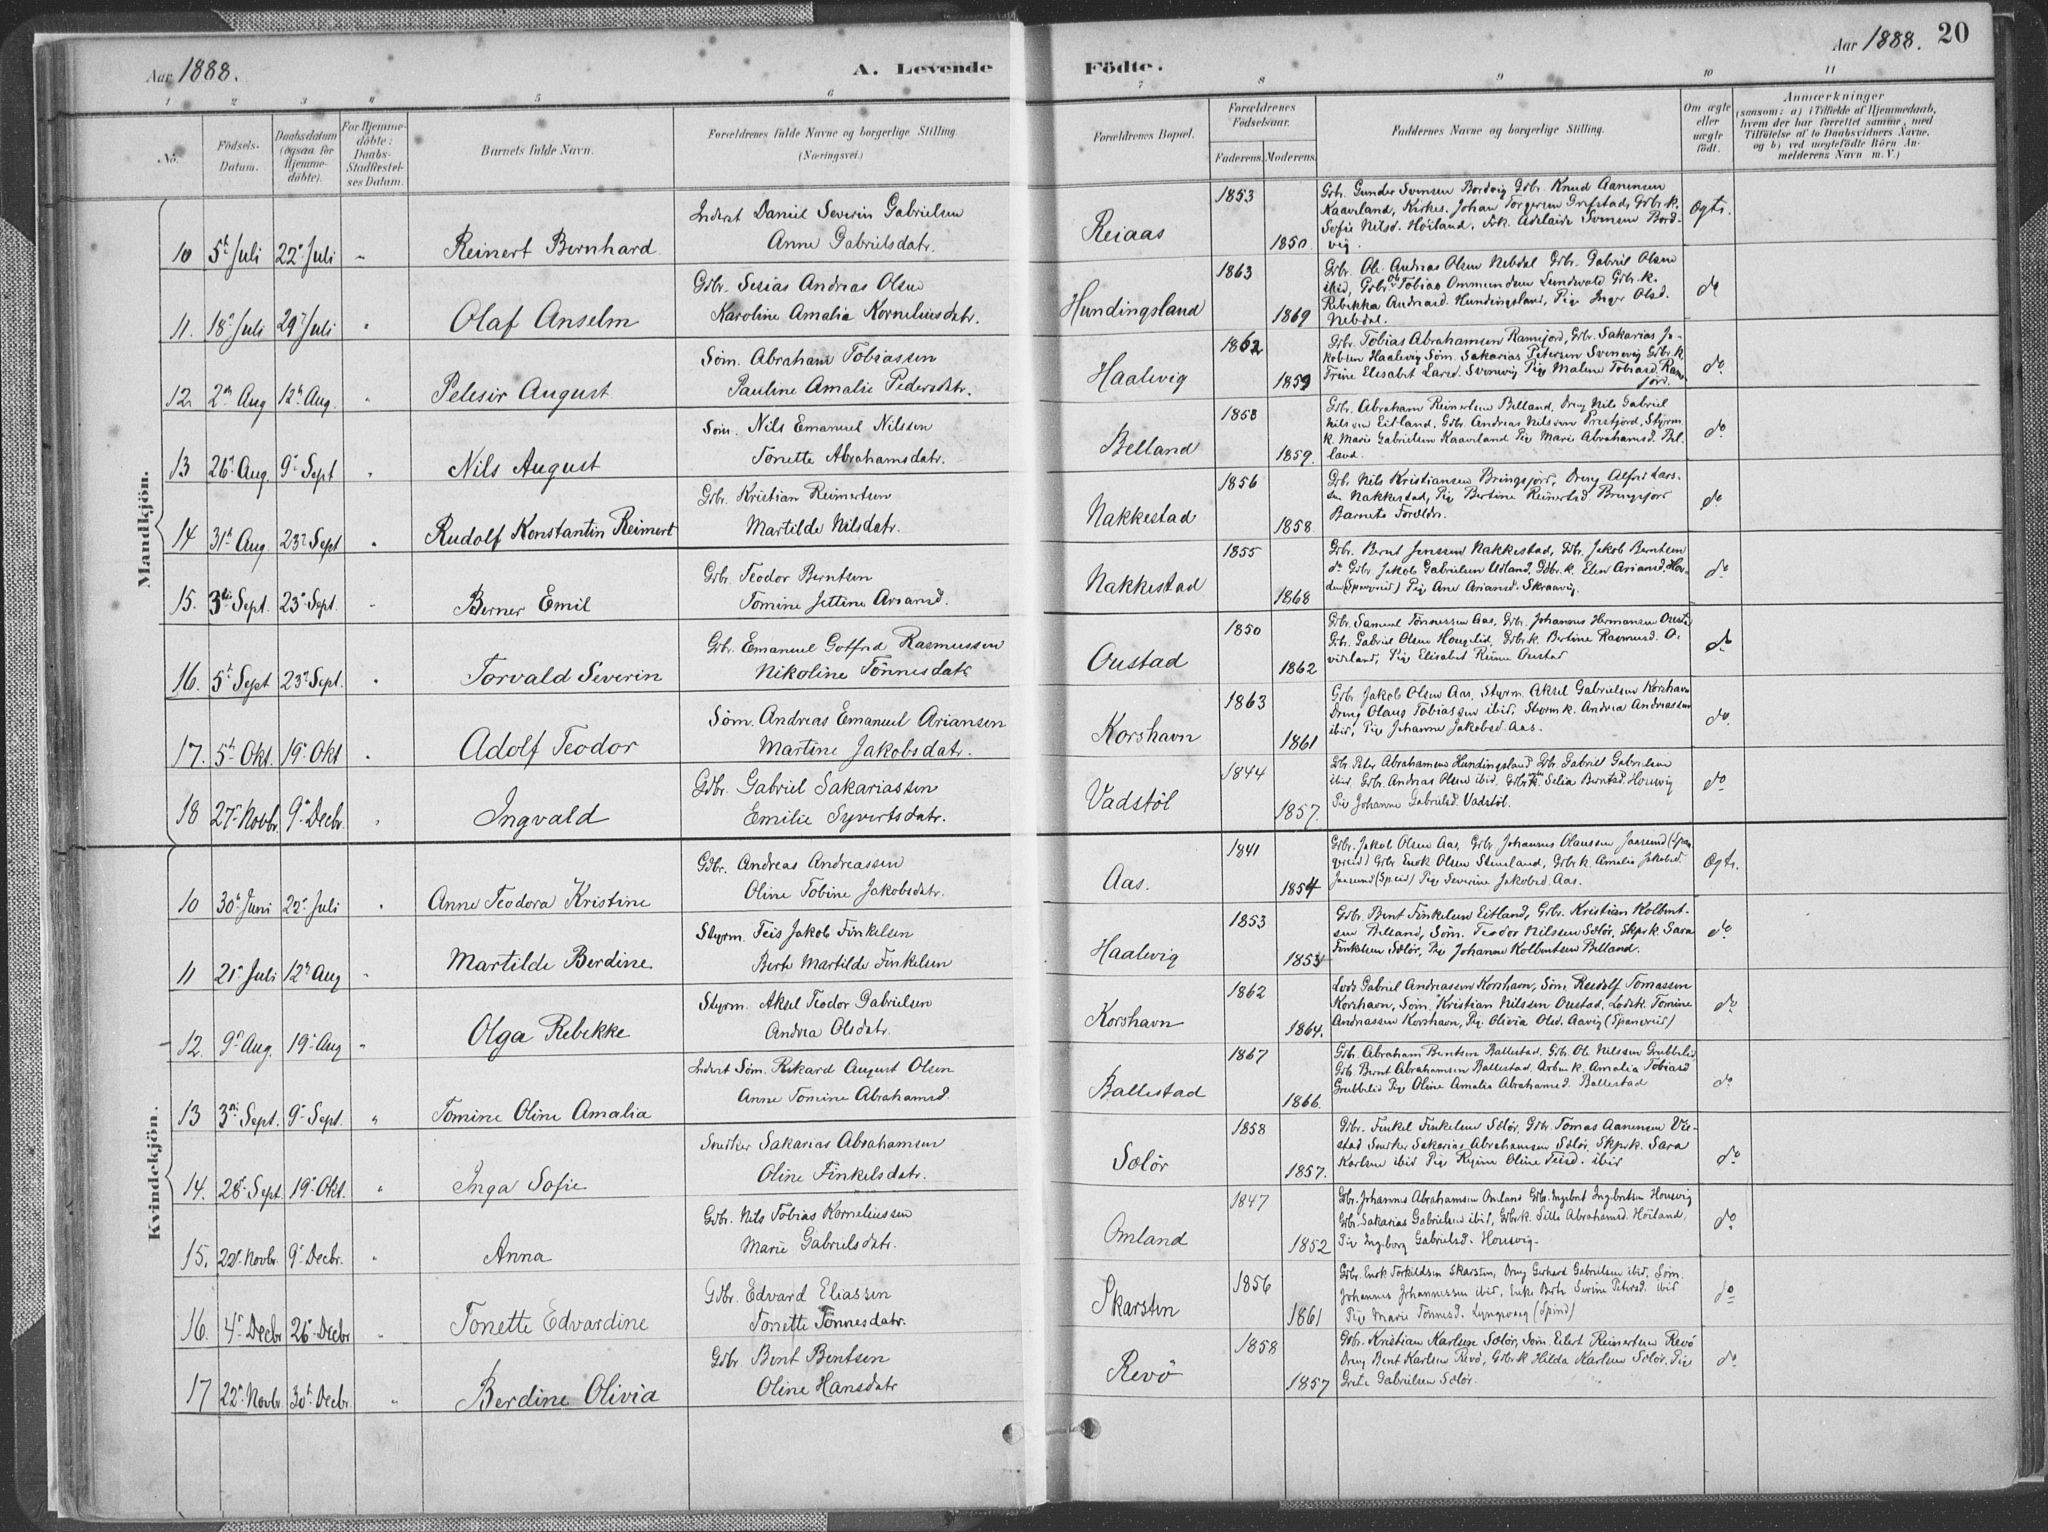 Aar 1888.
A. Levende Födte.
Aar 1888. 20
1 2 3 4 5 6 7 8 9 10 11
No.
Födsels-Datum.
Daabsdatum (ogsaa for Hjemme-döbte).
For Hjemme-döbte: Daabs-Stadfæstel-ses Datum.
Barnets fulde Navn.
Forældrenes fulde Navne og borgerlige Stilling.
(Næringsvei.)
Forældrenes Bopæl.
Forældrenes Födselsaar.
Faderens. Moderens.
Faddernes Navne og borgerlige Stilling.
Om ægte eller uægte födt.
Anmærkninger
(saasom: a) i Tilfælde af Hjemmedaab,
hvem der har forrettet samme, med
Tilföielse af to Daabsvidners Navne,
og b) ved uægtefödte Börn An-
melderens Navn m. V.)
Mandkjön.
10 5t Juli 22. Juli " Reinert Bernhard
Inderst Daniel Severin Gabrielsen
Anne Gabrielsdatr.
Reiaas 1853 1850.
Gbr. Gunder Svensen Bordvig Gbr. Knud Aanensen
Kaaveland, Kirkes. Johan Torgersen Grefstad, Gbr. k.
Sofie Nilsd. Höiland, Frk. Adelaide Svensen Bord-
vig.
Ægte.
11. 18. Juli 29. Juli " Olaf Anselm
Gbr. Sesias Andreas Olsen
Karoline Amalia Korneliusdatr.
Hundingsland 1863 1869
Gbr. Ole Andreas Olsen Nebdal Gbr. Gabriel Olsen
ibid, Gbr. Tobias Ommundsen Lundvold Gbr. k.
Rebekka Andreasd. Hundingsland, Pige Inger Olsd.
Nebdal.
do
12. 2den Aug 12te Aug. " Pelesir August
Söm. Abraham Tobiassen
Pauline Amalie Pedersdtr.
Haalevig 1862 1859
Gbr. Tobias Abrahamsen Ramsfjord, Gbr. Sakarias Ja-
kobsen Haalevig Söm. Sakarias Petersen Svenevig Gbr. k.
Trine Elisabet Larsd. Svenevig Pige Malene Tobiasd. Rams-
fjord.
do.
13 26. Aug. 9. Sept " Nils August
Söm. Nils Emanuel Nilssen
Tonette Abrahamsdatr.
Belland 1858 1859.
Gbr. Abraham Reinertsen Belland, Dreng Nils Gabriel
Nilssen Eitland, Gbr. Andreas Nilssen Prestfjord, Styrm.
k. Marie Gabrielsen Kaaveland Pige Marie Abrahamsd. Bel-
land.
do
14 31te Aug. 23. Sept " Rudolf Konstantin Reinert
Gbr. Kristian Reinertsen
Martilde Nilsdatr.
Nakkestad 1856 1858.
Gbr. Nils Kristiansen Bringsfjord, Dreng Alfred Lars-
sen Nakkestad, Pige Bertine Reinertsd. Bringsfjord
Barnets Forældre.
do
15. 3die Sept. 23. Sept. " Berner Emil
Gbr. Teodor Berntsen
Tomine Jettine Ariansd.
Nakkestad 1855 1868
Gbr. Bernt Jenssen Nakkestad, Gbr. Jakob Berntsen
do Gbr. Jakob Gabrielsen Udland, Gbr. k. Elen Ariansd. Hov-
den (Spangreid) Pige Ane Ariansd. Skraavig.
do
16. 5te Sept 23. Sept. " Torvald Severin
Gbr. Emanuel Gotfred Rasmussen
Nikoline Tönnesdatr
Oustad 1850 1862
Gbr. Samuel Tönnessen Aas, Gbr. Johannes Hermansen Oustad
Gbr. Gabriel Olsen Hougelid, Gbr k. Bertine Rasmusd. O-
videland, Pige Elisabet Oustad
do
17. 5te Okt. 19. Okt " Adolf Teodor
Söm. Andreas Emanuel Ariansen
Martine Jakobsdatr.
Korshavn 1863 1861
Gbr. Jakob Olsen Aas, Styrm. Aksel Gabrielsen Korshavn
Dreng Olaus Tobiassen ibid, Styrm k. Andrea Andreassen
ibid, Pige Johanne Jakobsd. Aas.
do.
18 27. Novbr. 9. Decbr. " Ingvald
Gbr. Gabriel Sakariassen
Emilie Syvertsdatr.
Vadstöl 1844 1857.
Gbr. Peter Abrahamsen Hundingsland Gbr. Gabriel Gabrielsen
ibid, Gbr. Andreas Olsen ibid, Gbr k. Selia Berntsd. Housvig
Pige Johanne Gabrielsd. Vadstöl.
do
Kvindekjön.
10 30te Juni 22. Juli " Anne Teodora Kristine
Gbr. Andreas Andreassen
Oline Tobine Jakobsdatr.
Aas. 1841 1854
Gbr. Jakob Olsen Aas, Gbr. Johannes Olaussen Jaasund (Span-
greid) Gbr. Enok Olsen Stensland, Gbr k. Amalia Jakobsd.
Jaasund (Sp.eid) Pige Severine Jakobsd. Aas.
Ægte.
11 21. Juli 12te Aug " Martilde Berdine
Styrm. Teis Jakob Finkelsen
Berte Martilde Finkelsen
Haalevig 1853 1854
Gbr. Bent Finkelsen Eitland, Gbr. Kristian Kolbent-
sen Belland, Söm. Teodor Nilsen Selör, Skpr k. Sara
Finkelsen Selör, Pige Johanne Kolbentsen Belland.
do.
12. 9de Aug. 19. Aug " Olga Rebekke
Styrm. Aksel Teodor Gabrielsen
Andrea Olsdatr.
Korshavn 1862 1864.
Lods Gabriel Andreassen Korshavn, Söm. Rudolf Tomassen
Korshavn, Söm. Kristian Nilssen Oustad, Lodsk. Tomine
Andreassen Korshavn, Pige Olivia Olsd. Aavig (Spangreid)
do
13 3die Sept. 9. Sept. " Tomine Oline Amalia
Inderst Söm. Rikard August Olsen
Anne Tomine Abrahamsd.
Ballestad 1867 1866.
Gbr. Abraham Bentsen Ballestad, Gbr. Ole Nilssen Grubbelid
Gbr Bernt Abrahamsen Ballestad, Arb. k. Amalia Tobiasd
Grubbelid Pige Oline Amalia Abrahamsd. Ballestad
do
14. 28. Sept. 19. Okt. " Inga Sofie
Snedker Sakarias Abrahamsen
Oline Finkelsdatr.
Selör 1858 1857.
Gbr. Finkel Finkelsen Selör, Gbr. Tomas Aanensen Ve-
stad Snedker Sakarias Abrahamsen Selör, Skpr k. Sara
Karlsen ibid Pige Regine Oline Teisd. ibid
do
15. 22. Novbr. 9. Decbr. " Anna
Gbr. Nils Tobias Korneliussen
Marie Gabrielsdatr.
Omland 1847 1852
Gbr. Johannes Abrahamsen Omland Gbr. Ingebret Ingebretsen Housvig
Gbr. Sakarias Gabrielsen ibid, Gbr k. Sille Abrahamsd. Höiland,
Pige Ingeborg Gabrielsd. Housvig.
do.
16. 4. Decbr 26. Decbr " Tonette Edvardine
Gbr. Edvard Eliassen
Tonette Tönnesdatr.
Skarsten 1856 1861
Gbr. Enok Torkildsen Skarsten, Dreng Gerhard Gabrielsen ibid, Söm.
Johannes Johannessen ibid, Enke Berte Serine Petersd. ibid
Pige Marie Tönnesd. Lyngsvaag (Spind)
do
17 22. Novbr. 30te Decbr. " Berdine Olivia
Gbr Bent Bentsen
Oline Hansdatr
Revö 1858 1857
Gbr. Kristian Karlsen Selör, Söm. Eilert Reinertsen Revö
Dreng Bent Karlsen Revö, Gbr k Hilda Karlsen Selör, Pige
Grete Gabrielsen Selör.
do